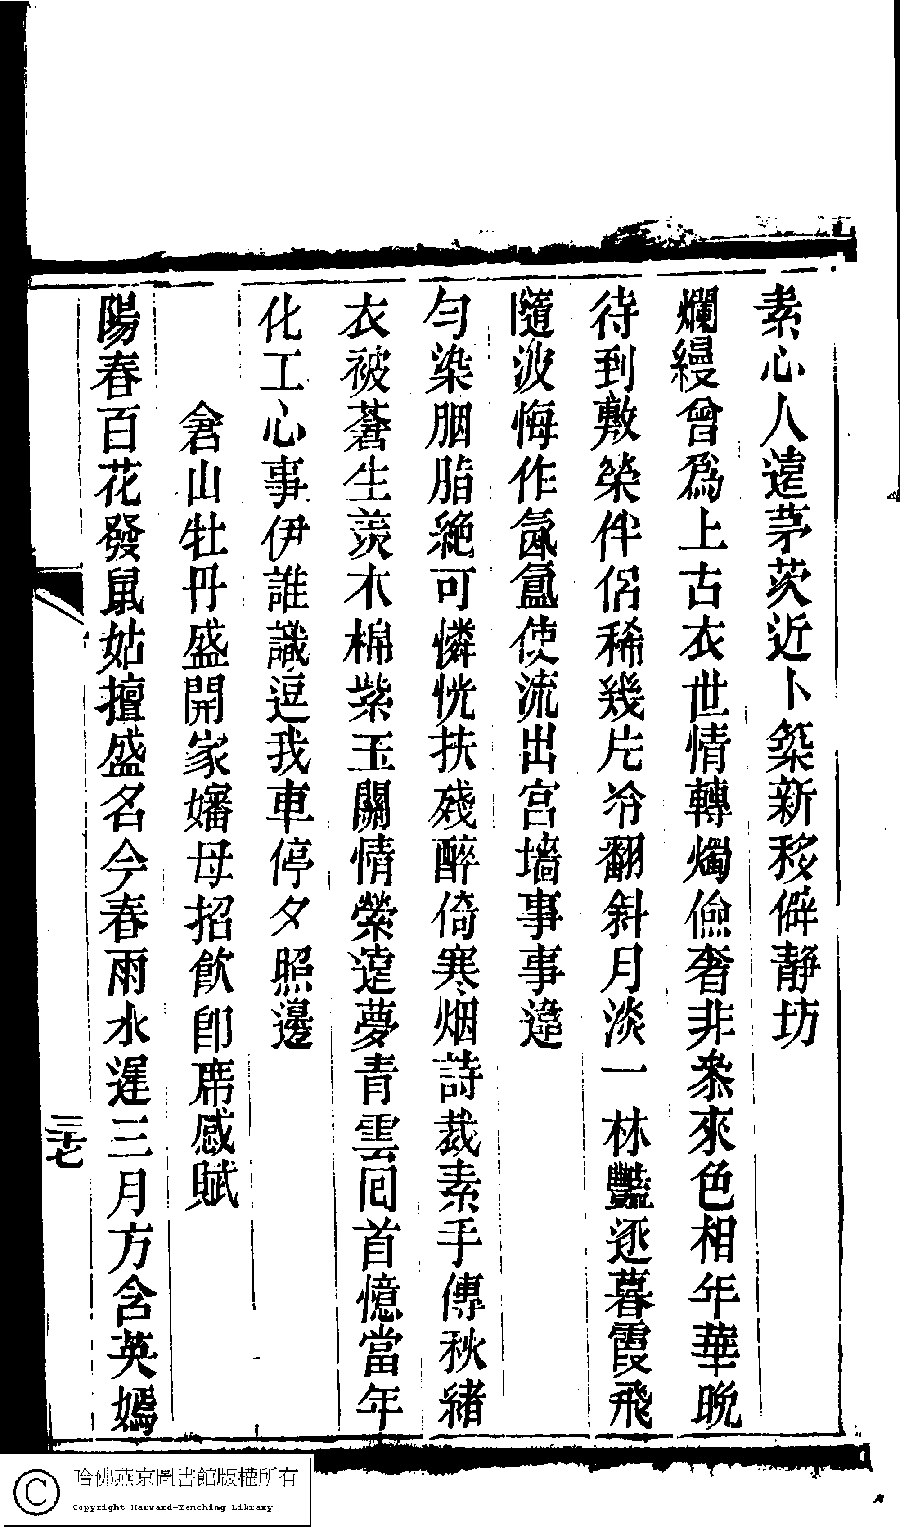 素心人遠茅茨近卜築新移僻靜坊
爛縵曾爲上古衣世情轉燭儉奢非叅來色相年華晩
待到敷榮伴侶稀幾片冷翻斜月淡一林豔逐暮霞飛
隨波悔作氤氳使流出宮墻事事違
勻染胭脂絕可憐恍扶殘醉倚寒烟詩裁素手傳秋緒
衣被蒼生羨木棉紫玉關情縈遠夢青雲囘首憶當年
化工心事伊誰識逗我車停夕照邊
倉山牡丹盛開家嬸母招飲卽席感賦
陽春百花發鼠姑擅盛名今春雨水遲三月方含英嫣
三十七
哈佛燕京圖書館版權所有
Copyright Harvard-Yenching Library